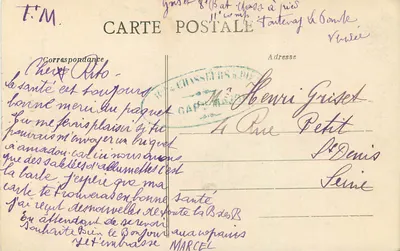 F.M.
Griset 8e Bat Chass à pied
11e Comp Fontenay le Comte
Vendée
CARTE POSTALE
Correspondance
Adresse
CHASSEURS
Cher
la santé est toujours
bonne merci du paquet
tu me ferais plaisir si tu
pourrais m'envoyer un briquet
à amadou car ici nous avons
que des sales d'allumettes c'est
la barbe j'espère que ma
carte te trouveras en bonne santé
j'ai reçut des nouvelles de
En attendant de se revoir
souhaite bien le Bonjour aux copains
Je t'embrasse MARCEL
Mr Henri Griset
4 Rue Petit
St Denis
Seine